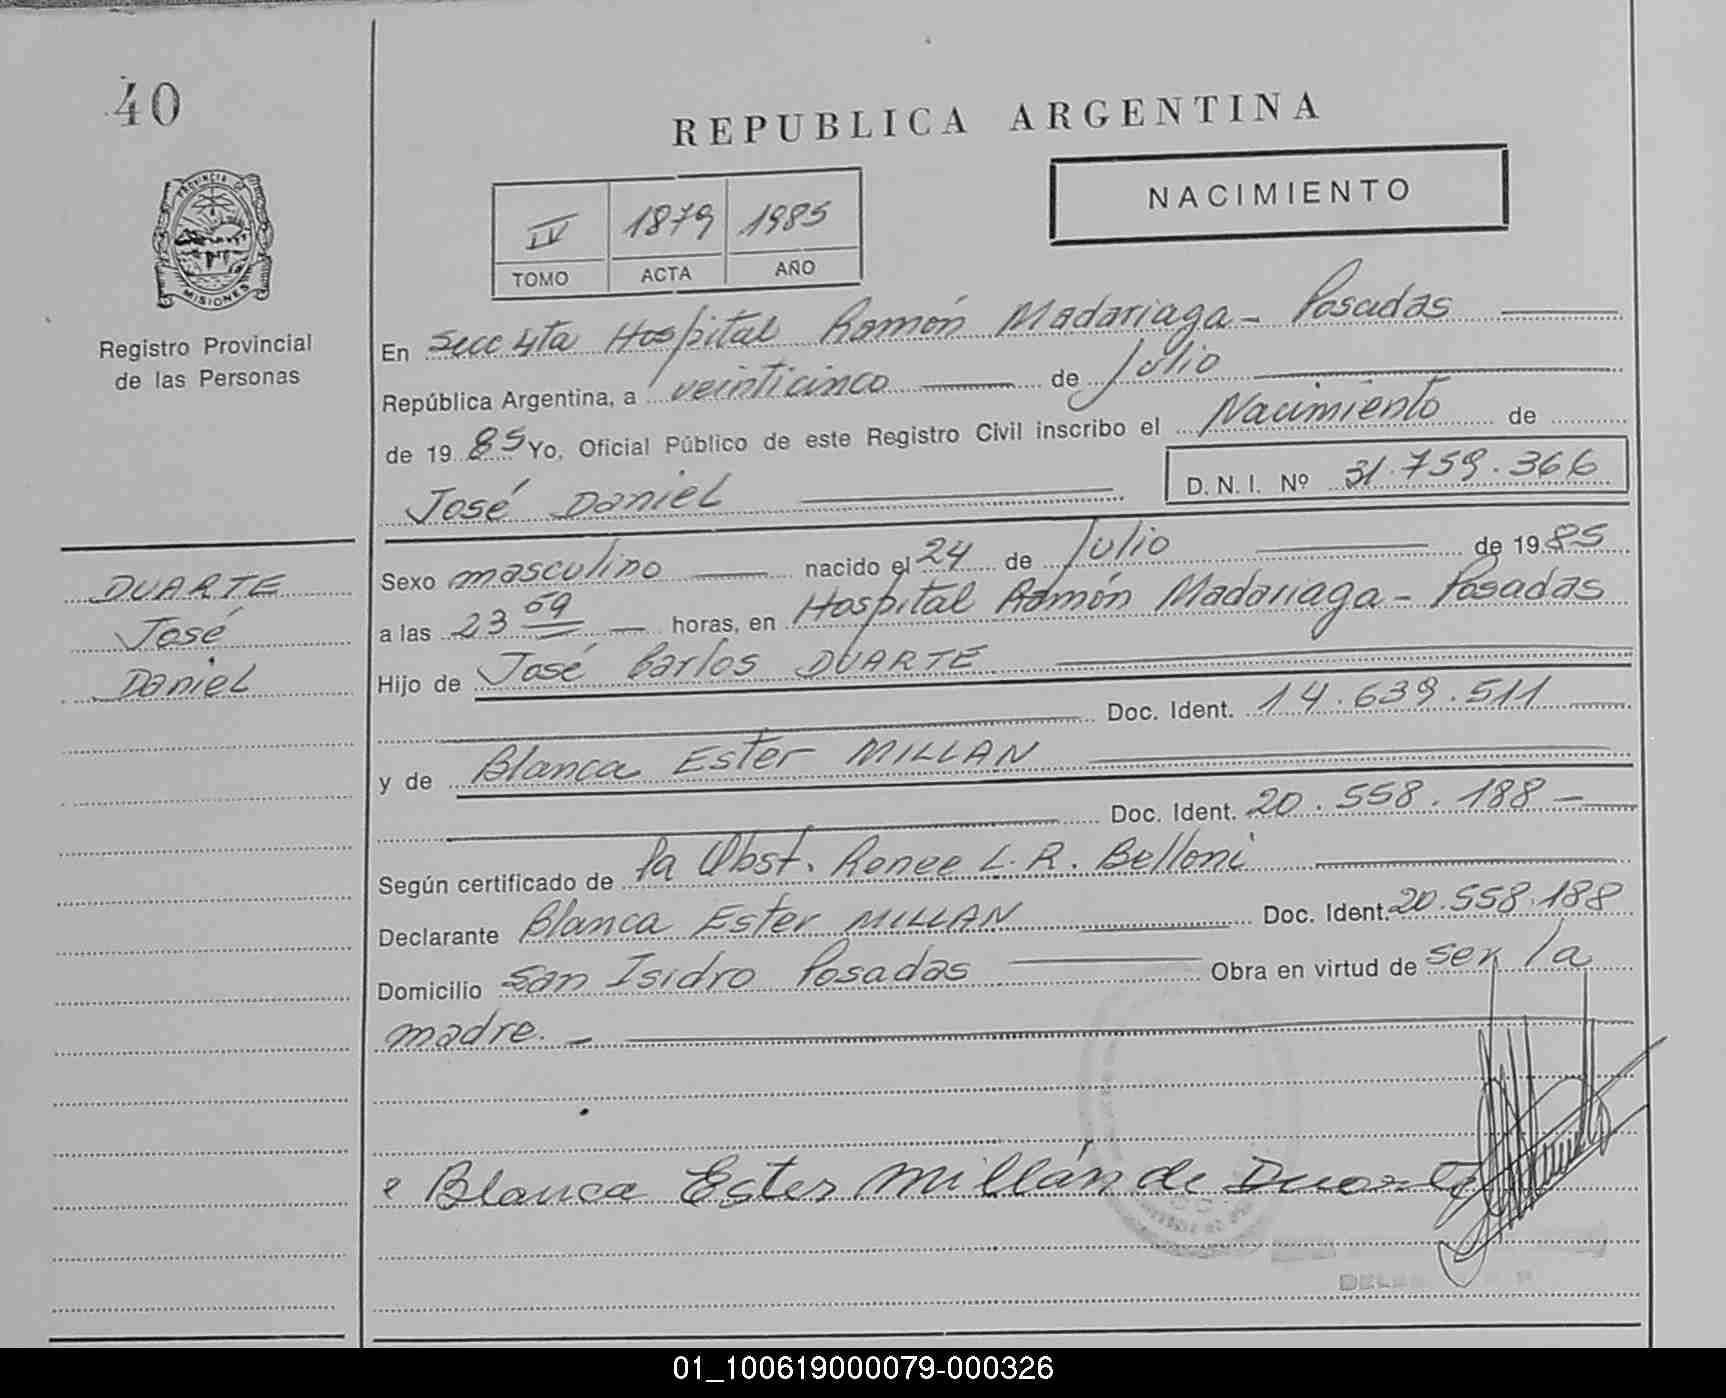 40
REPUBLICA ARGENTINA
NACIMIENTO
IV 1879 1985
TOMO ACTA AÑO
PROVINCIA DE
MISIONES
Registro Provincial
de las Personas
En Secc 4ta Hospital Ramón Madariaga - Posadas
República Argentina, a veinticinco de Julio
de 1985 Yo, Oficial Público de este Registro Civil inscribo el Nacimiento de
José Daniel D. N. I. Nº 31.759.366
DUARTE
José
Daniel
Sexo masculino nacido el 24 de Julio de 1985
a las 23 59 horas, en Hospital Ramón Madariaga - Posadas
Hijo de José Carlos DUARTE
Doc. Ident. 14.639.511
y de Blanca Ester MILLAN
Doc. Ident. 20.558.188 -
Según certificado de la Obst. Renee L. R. Belloni
Declarante Blanca Ester MILLAN Doc. Ident. 20.558.188
Domicilio San Isidro Posadas Obra en virtud de ser la
madre. -
Blanca Ester Millán de Duarte
01_100619000079-000326